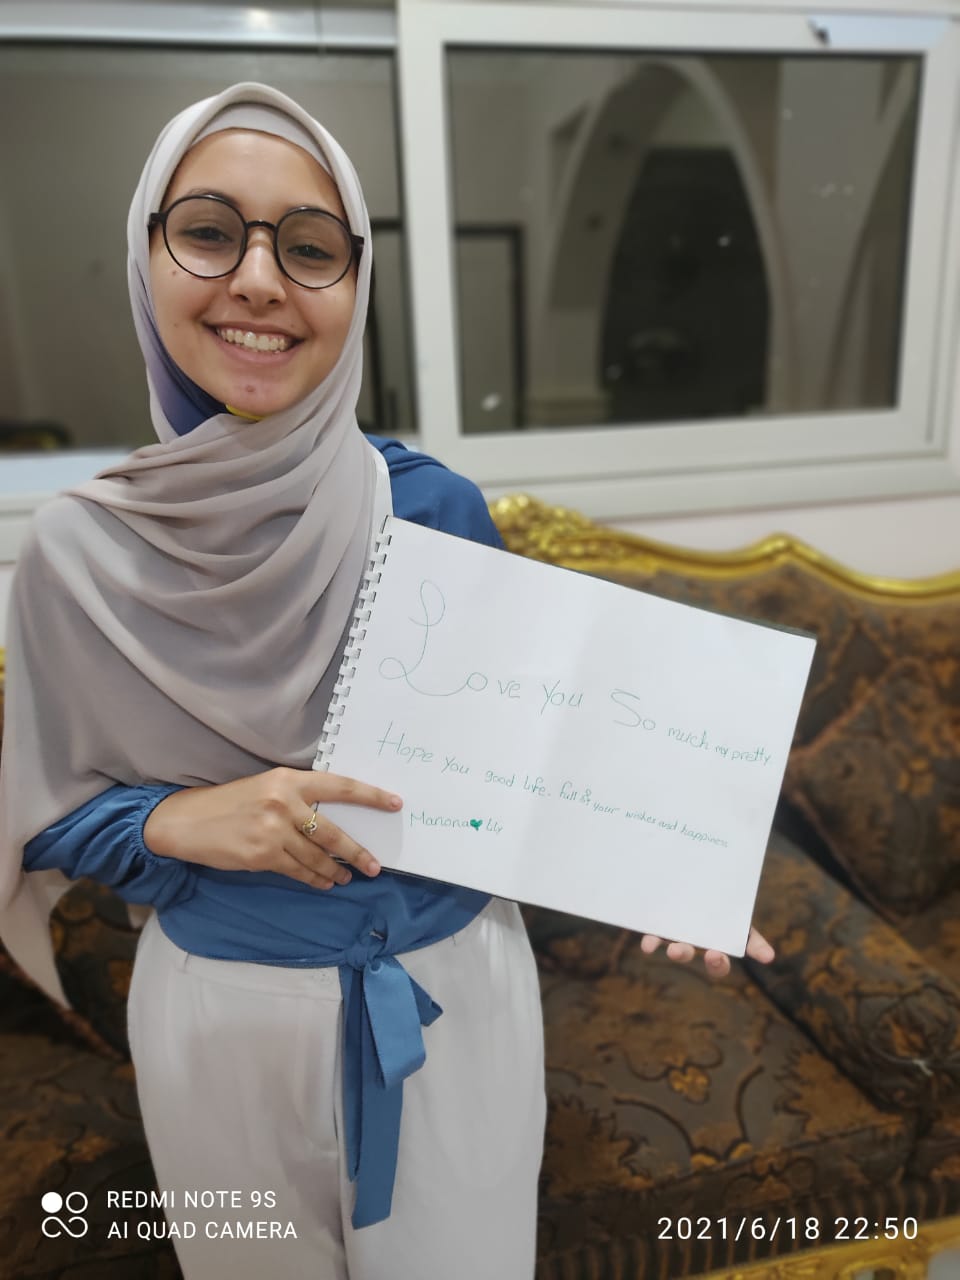 Love you So much my pretty
Hope you good life. full of your wishes and happiness
Manona Lily
REDMI NOTE 9S
AI QUAD CAMERA
2021/6/18 22:50